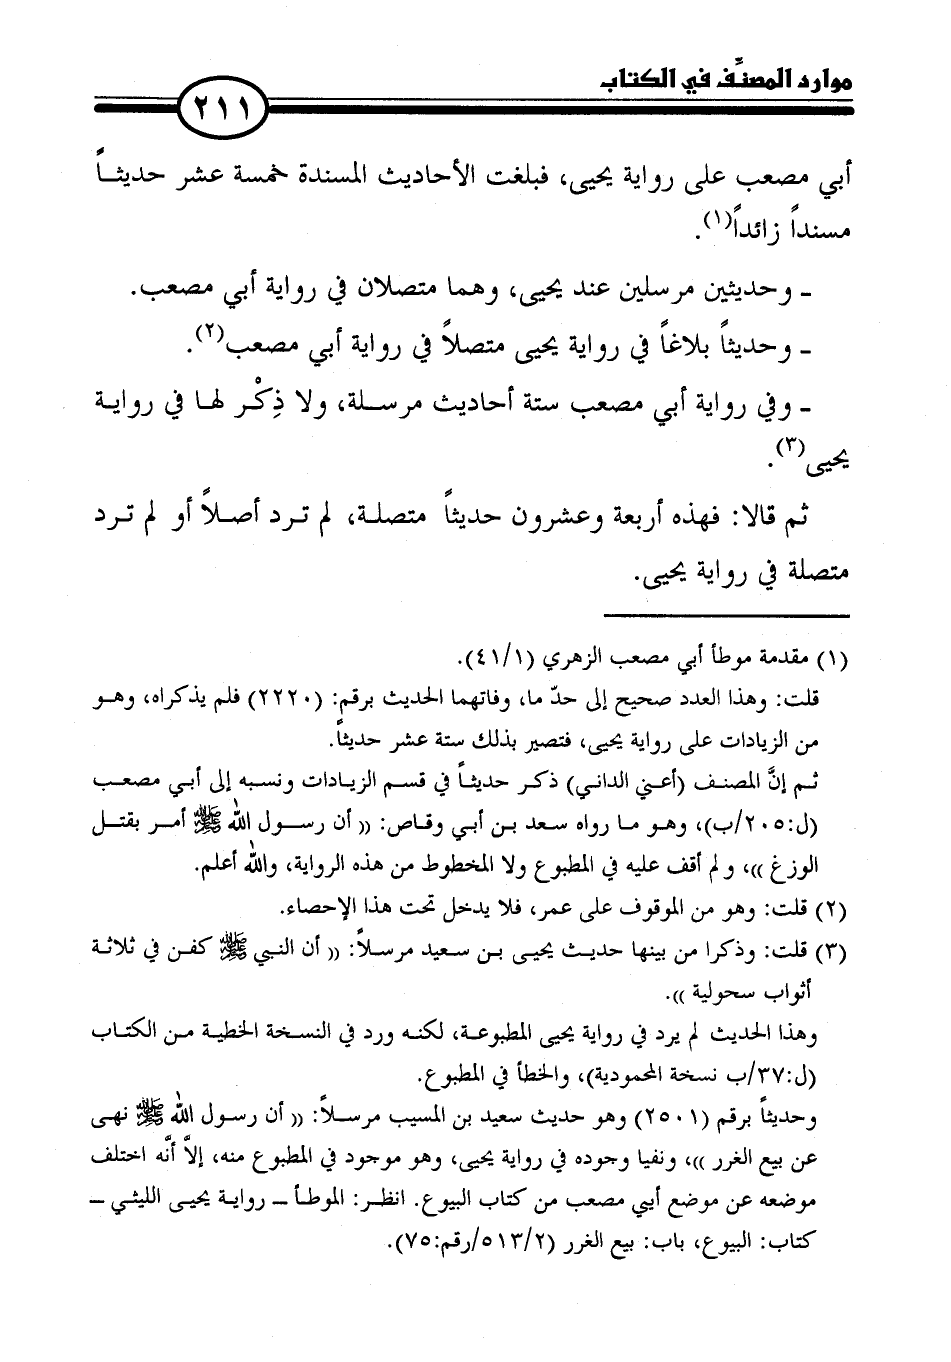 موارد المصنَّف في الكتاب
٢١١
أبي مصعب على رواية يحيى، فبلغت الأحاديث المسندة خمسة عشر حديثاً
مسنداً زائداً(١).
ـ وحديثين مرسلين عند يحيى، وهما متصلان في رواية أبي مصعب.
ـ وحديثاً بلاغاً في رواية يحيى متصلاً في رواية أبي مصعب(٢).
ـ وفي رواية أبي مصعب ستة أحاديث مرسلة، ولا ذِكْر لها في رواية
يحيى(٣).
ثم قالا: فهذه أربعة وعشرون حديثاً متصلة، لم ترد أصلاً أو لم ترد
متصلة في رواية يحيى.
(١) مقدمة موطأ أبي مصعب الزهري (٤١/١).
قلت: وهذا العدد صحيح إلى حدّ ما، وفاتهما الحديث برقم: (٢٢٢٠) فلم يذكراه، وهو
من الزيادات على رواية يحيى، فتصير بذلك ستة عشر حديثاً.
ثم إنَّ المصنف (أعني الداني) ذكر حديثاً في قسم الزيادات ونسبه إلى أبي مصعب
(ل:٢٠٥/ب)، وهو ما رواه سعد بن أبي وقاص: (( أن رسول الله ﷺ أمر بقتل
الوزغ ))، ولم أقف عليه في المطبوع ولا المخطوط من هذه الرواية، والله أعلم.
(٢) قلت: وهو من الموقوف على عمر، فلا يدخل تحت هذا الإحصاء.
(٣) قلت: وذكرا من بينها حديث يحيى بن سعيد مرسلاً: (( أن النبي ﷺ كفن في ثلاثة
أثواب سحولية )).
وهذا الحديث لم يرد في رواية يحيى المطبوعة، لكنه ورد في النسخة الخطية من الكتاب
(ل:٣٧/ب نسخة المحمودية)، والخطأ في المطبوع.
وحديثاً برقم (٢٥٠١) وهو حديث سعيد بن المسيب مرسلاً: (( أن رسول الله ﷺ نهى
عن بيع الغرر ))، ونفيا وجوده في رواية يحيى، وهو موجود في المطبوع منه، إلاَّ أنَّه اختلف
موضعه عن موضع أبي مصعب من كتاب البيوع. انظر: الموطأ ـ رواية يحيى الليثي ـ
كتاب: البيوع، باب: بيع الغرر (٥١٣/٢/رقم:٧٥).